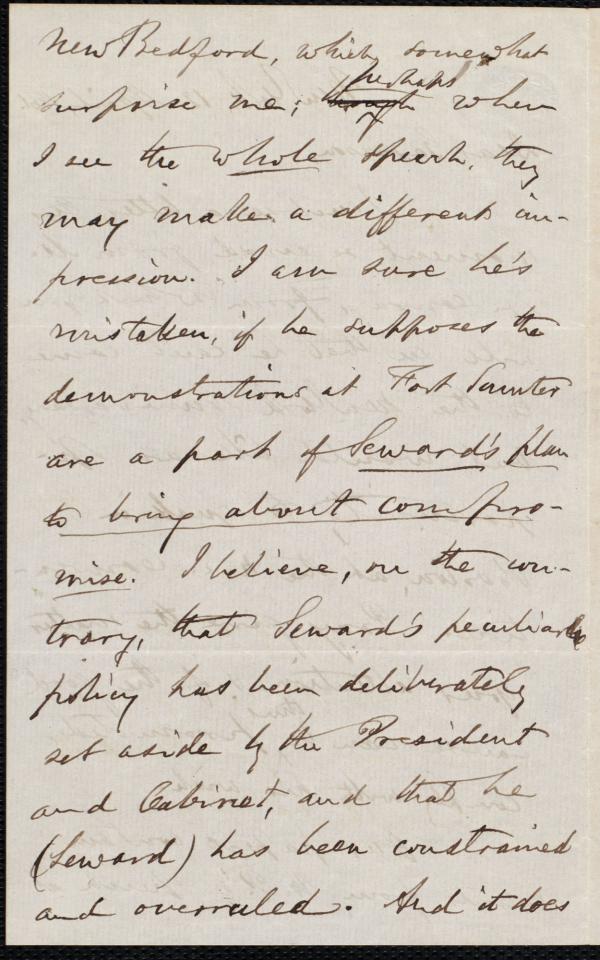 New Bedford, which somewhat
surprise me; though perhaps when
I see the whole speech, they
may make a different im-
pression. I am sure he's
mistaken, if he supposes the
demonstrations at Fort Sumter
are a part of Seward's plan
to bring about compro-
mise. I believe, on the con-
trary, that Seward's peculiar
policy has been deliberately
set aside by the President
and Cabinet, and that he
(Seward) has been constrained
and overruled. And it does